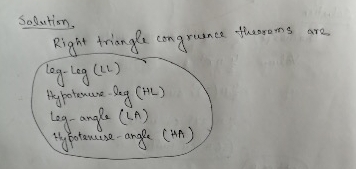 Solution
Right triangle congruence theorems are
Leg-Leg (LL)
Hypotenuse-leg (HL)
Leg-angle (LA)
Hypotenuse-angle (HA)